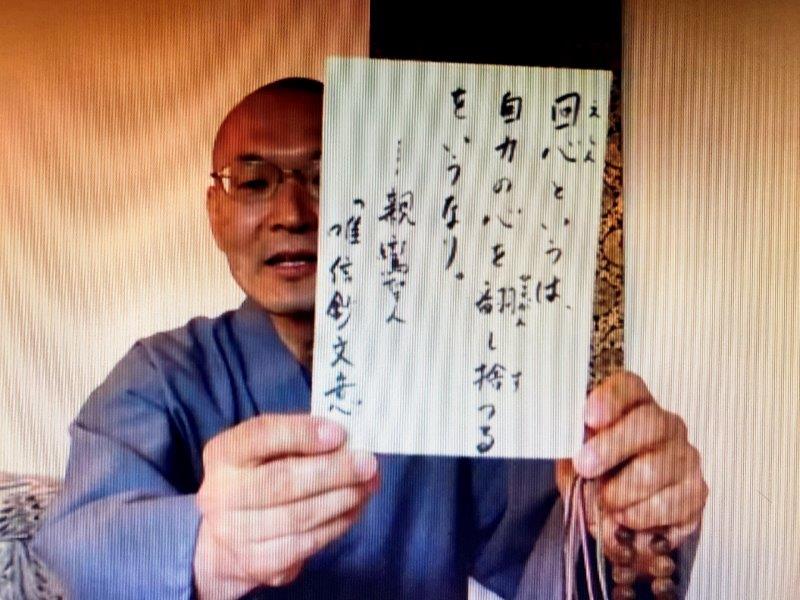 えしん
回心というは、
す
自力の心を翻し捨つる
をいうなり。
…親鸞聖人
「唯信鈔文意」